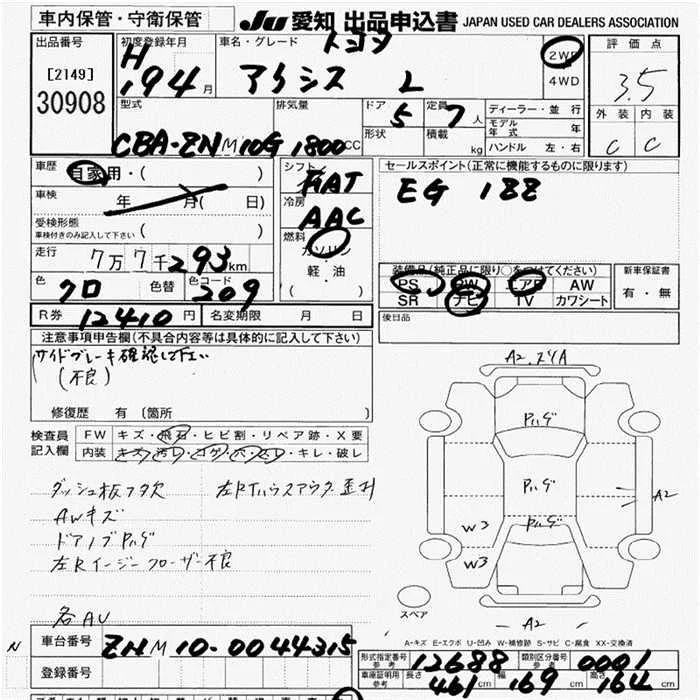 車内保管・守衛保管
JU 愛知 出品申込書 JAPAN USED CAR DEALERS ASSOCIATION
出品番号
[2149]
30908
初度登録年月
H 19 4 月
車名・グレード トヨタ
アイシス L
2WD
4WD
評価点
3.5
外装 内装
C C
型式
CBA-ZNM10G
排気量
1800 CC
ドア 5
形状
定員 7 人
積載 kg
ディーラー・並行
モデル年式 年
ハンドル 左・右
車歴
自家用・( )
車検
年 月( 日)
受検形態
車検付きのみ記入して下さい ( )
走行
7万7千293km
色 クロ
色替
色コード 209
シフト
FAT
冷房
AAC
燃料
ガソリン
軽・油
( )
セールスポイント(正常に機能するものに限ります)
EG 188
装備品(純正品に限り○をつけてください)
PS PW エアB AW
SR ナビ TV カワシート
新車保証書
有・無
後日品
R券 12410 円
名変期限 月 日
注意事項申告欄(不具合内容等は具体的に記入して下さい)
サイドブレーキ確認して下さい
(不良)
修復歴 有 [箇所 ]
検査員記入欄
FW キズ・飛石・ヒビ割・リペア跡・X要
内装 キズ・汚レ・コゲ・穴・スレ・キレ・破レ
ダッシュ板フタ欠
AWキズ
ドアノブPハゲ
左Rイージークローザー不良
各AU
A2.スリA
Pハゲ
Pハゲ
Pハゲ
A2
W3
W3
A2
スペア
A-キズ E-エクボ U-凹み W-補修跡 S-サビ C-腐食 XX-交換済
車台番号 ZNM10-0044315
登録番号
形式指定番号 参考 12688
類別区分番号 参考 0001
車庫証明用 参考 長さ 461cm 幅 169cm 高さ 164cm
N